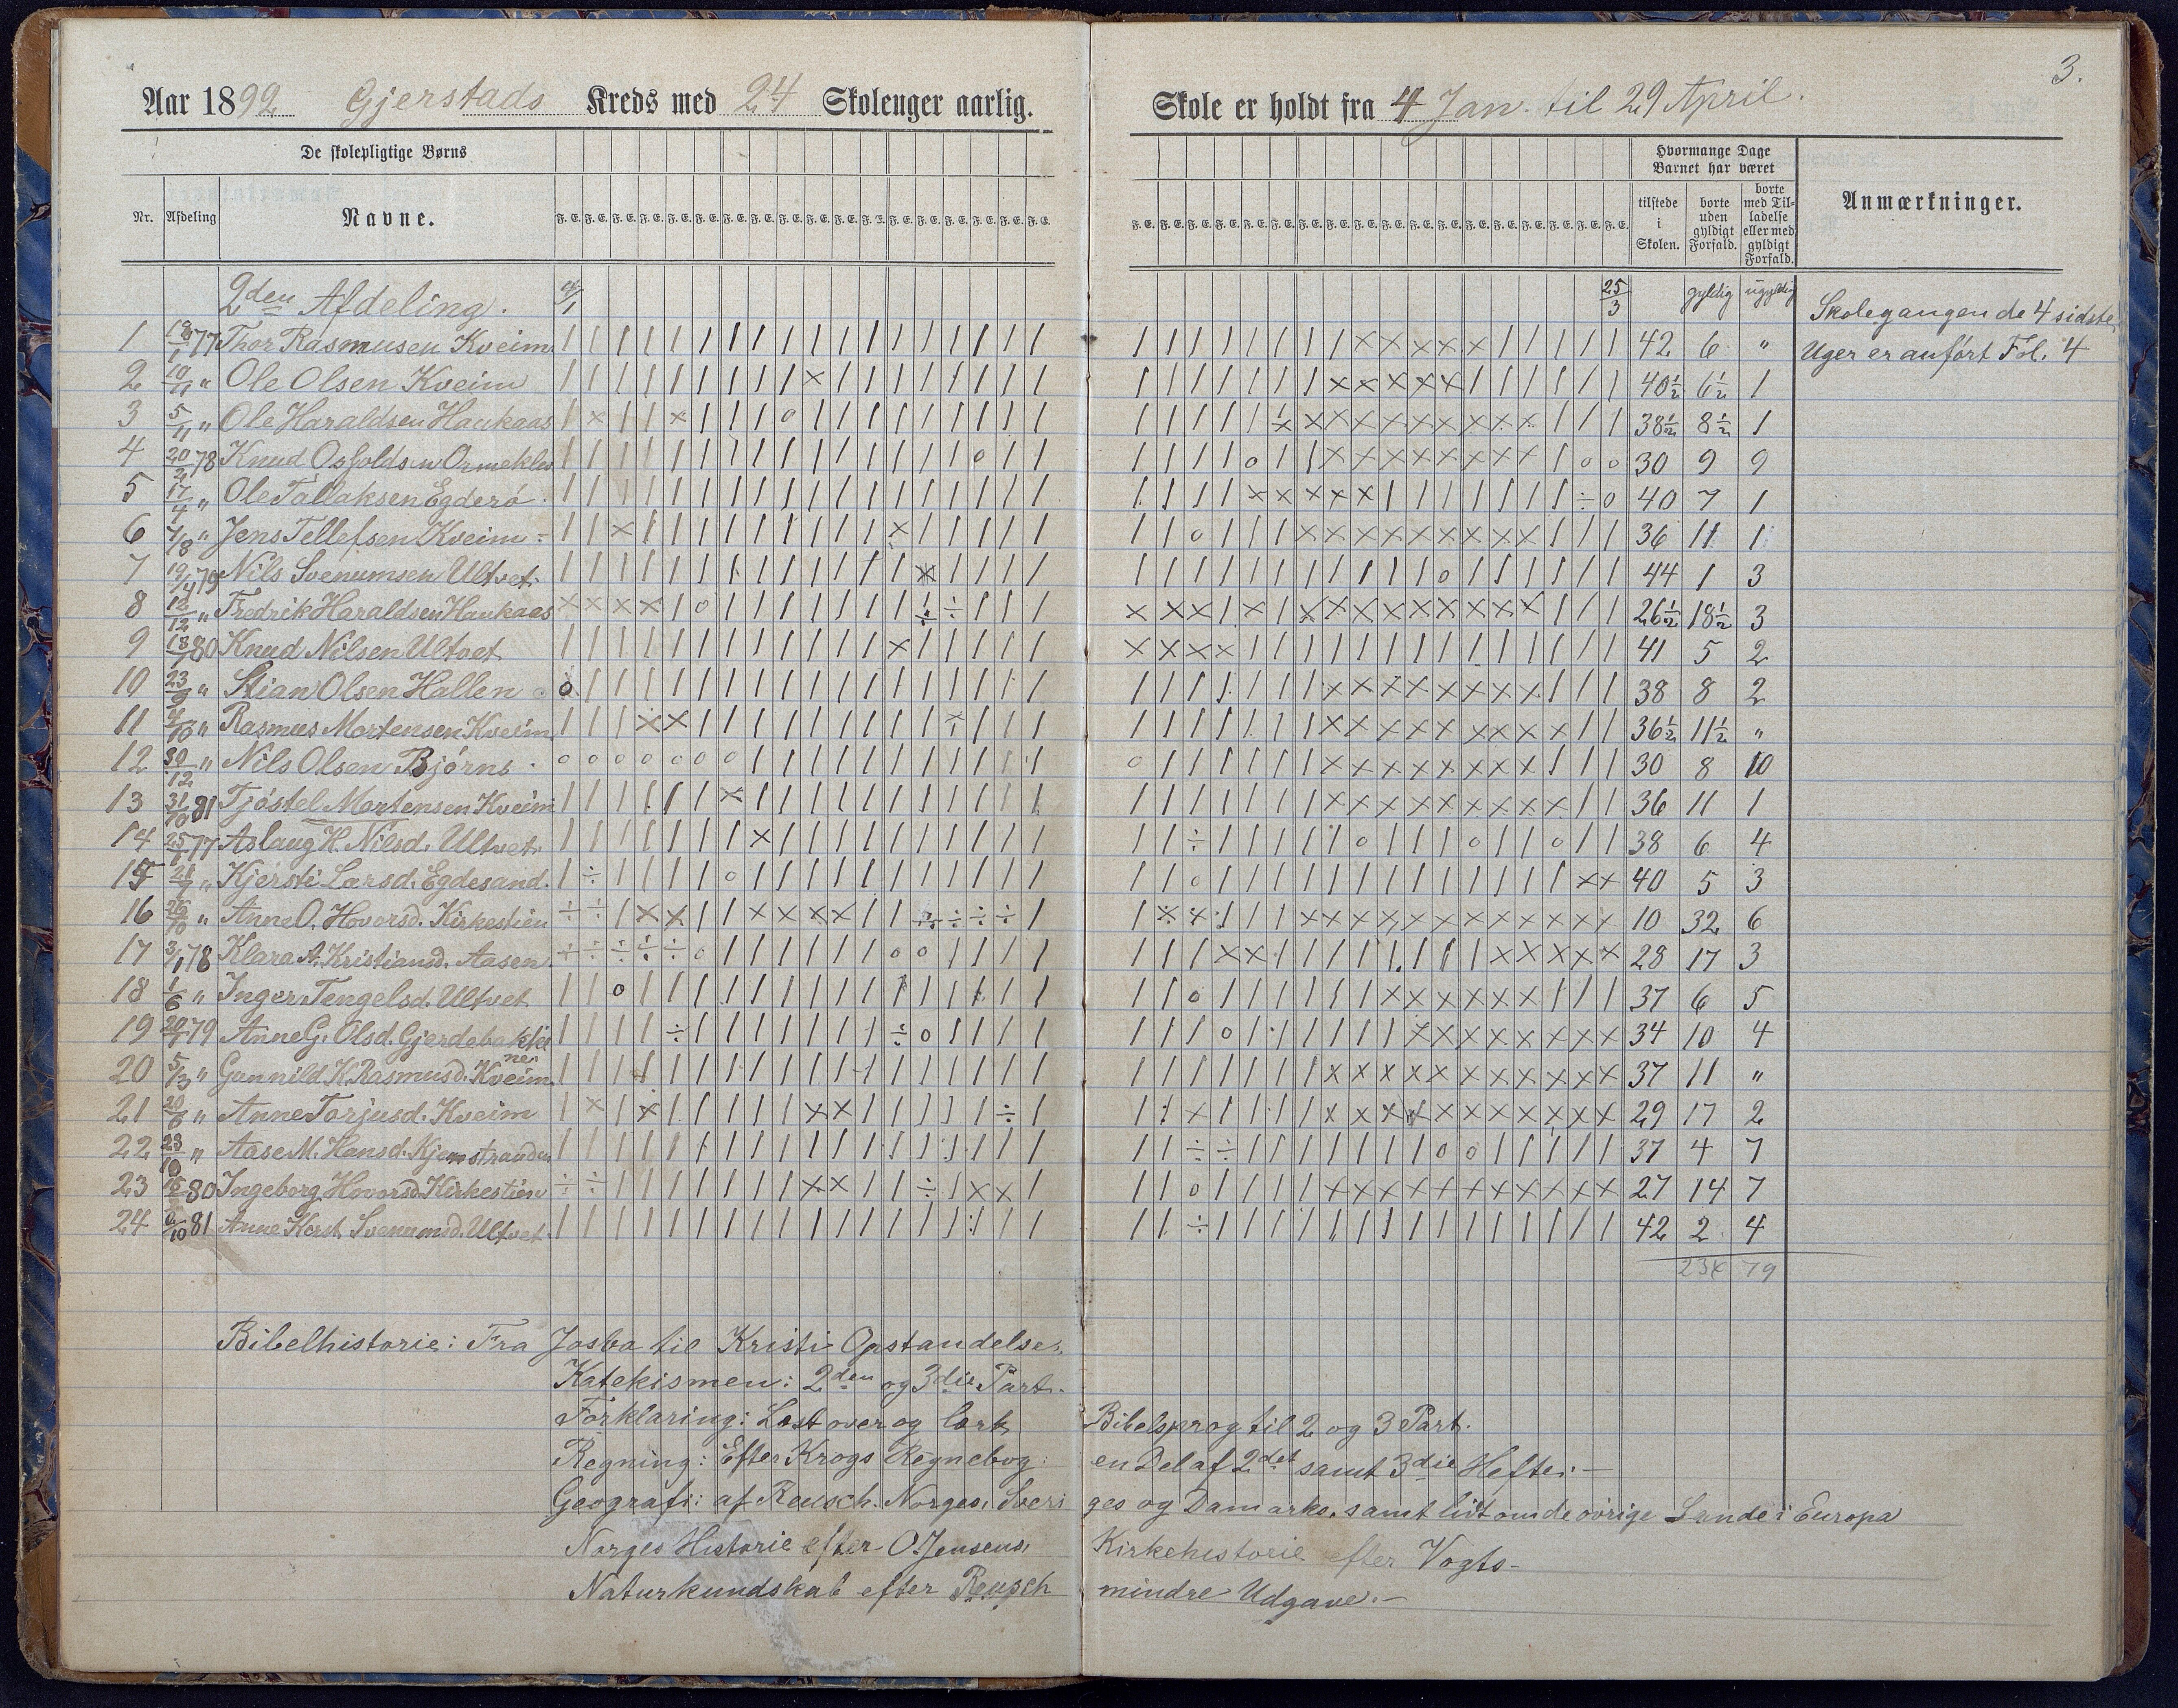 3.
Aar 1892 Gjerstads Kreds med 24 Skoleuger aarlig. Skole er holdt fra 4 Jan. til 29 April.
De skolepligtige Børns
Hvormange Dage Barnet har været
Nr. Afdeling Navne. F. E. F. E. F. E. F. E. F. E. F. E. F. E. F. E. F. E. F. E. F. E. F. E. F. E. F. E. F. E. F. E. F. E. F. E.
tilstede i Skolen. borte uden gyldigt Forfald. borte med Tilladelse eller med gyldigt Forfald. Anmærkninger.
2den Afdeling. 4/1 25/3 gyldig ugyldig
Skolegangen de 4 sidste
Uger er anført Fol. 4
1 18/1 77 Thor Rasmusen Kveim 42 6 "
2 10/11 " Ole Olsen Kveim 40½ 6½ 1
3 5/11 " Ole Haraldsen Haukaas 38½ 8½ 1
4 20/2 78 Knud Osfoldsen Ormeklev 30 9 9
5 17/4 " Ole Tallaksen Egderø 40 7 1
6 4/8 " Jens Tellefsen Kveim 36 11 1
7 19/4 79 Nils Svenumsen Ultvet 44 1 3
8 12/12 " Fredrik Haraldsen Haukaas 26½ 18½ 3
9 18/1 80 Knud Nilsen Ultvet 41 5 2
10 23/9 " Stian Olsen Hallen 38 8 2
11 4/10 " Rasmus Mortensen Kveim 36½ 11½ "
12 30/12 " Nils Olsen Bjørns 30 8 10
13 31/10 81 Tjøstel Mortensen Kveim 36 11 1
14 25/1 77 Aslaug K. Nilsd. Ultvet 38 6 4
15 21/7 " Kjersti Larsd. Egdesand. 40 5 3
16 26/10 " Anne O. Hovorsd. Kirkestien 10 32 6
17 3/1 78 Klara A. Kristiansd. Aasen 28 17 3
18 1/6 " Inger Tengelsd. Ultvet 37 6 5
19 20/1 79 Anne G. Olsd. Gjerdebakkene 34 10 4
20 5/3 " Gunnild K. Rasmusd. Kveim 37 11 "
21 20/6 " Anne Torjusd. Kveim 29 17 2
22 23/10 " Aase M. Hansd. Kjernstranden 37 4 7
23 15/2 80 Ingeborg Hovorsd. Kirkestien 27 14 7
24 6/10 81 Anne Kirst. Svenumsd. Ultvet 42 2 4
79
Bibelhistorie: Fra Josva til Kristi Opstandelse.
Katekismen: 2den og 3die Part.
Forklaring: Læst over og lært Bibelsprog til 2 og 3 Part.
Regning: Efter Krogs Regnebog en Del af 2det samt 3die Hefte.
Geografi: af Reusch. Norges, Sveriges og Danmarks, samt lidt om de øvrige Lande i Europa
Norges Historie efter O. Jensens, Kirkehistorie efter Vogts
Naturkundskab efter Reusch mindre Udgave.